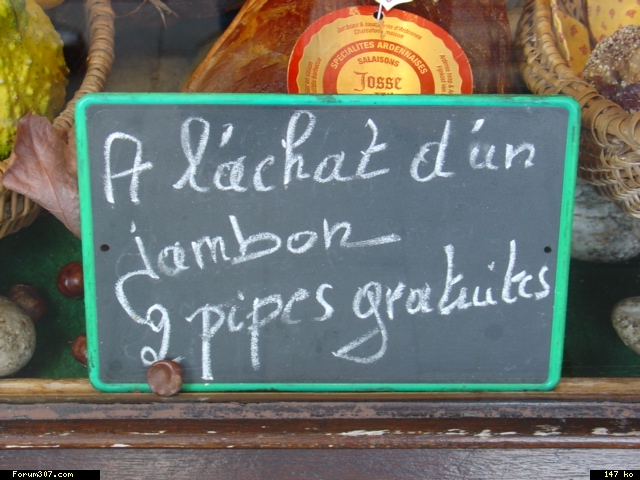 SPECIALITES ARDENNAISES
SALAISONS
Josse
A l'achat d'un
jambon
2 pipes gratuites
Forum307.com
147 ko